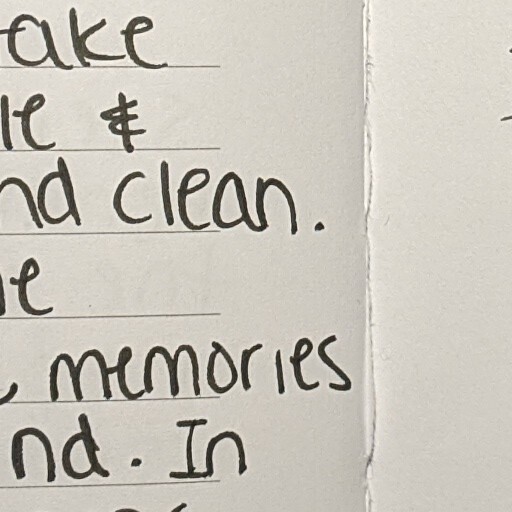 ake
le &
nd clean.
e
memories
nd. In